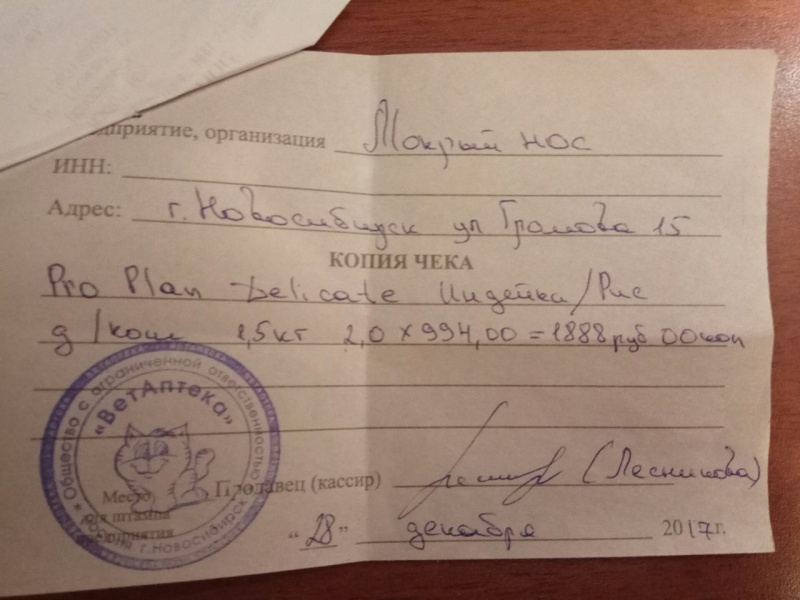 дприятие, организация Мокрый нос
ИНН:
Адрес: г. Новосибирск ул Громова 15
КОПИЯ ЧЕКА
Pro Plan Delicate Индейка/Рис
д/кош 1,5кг 2,0 × 994,00 = 1888 руб 00 коп
Общество с ограниченной ответственностью
«ВетАптека»
г. Новосибирск
Продавец (кассир) (Лесникова)
Место
для штампа
приятия
"28" декабря 2017г.